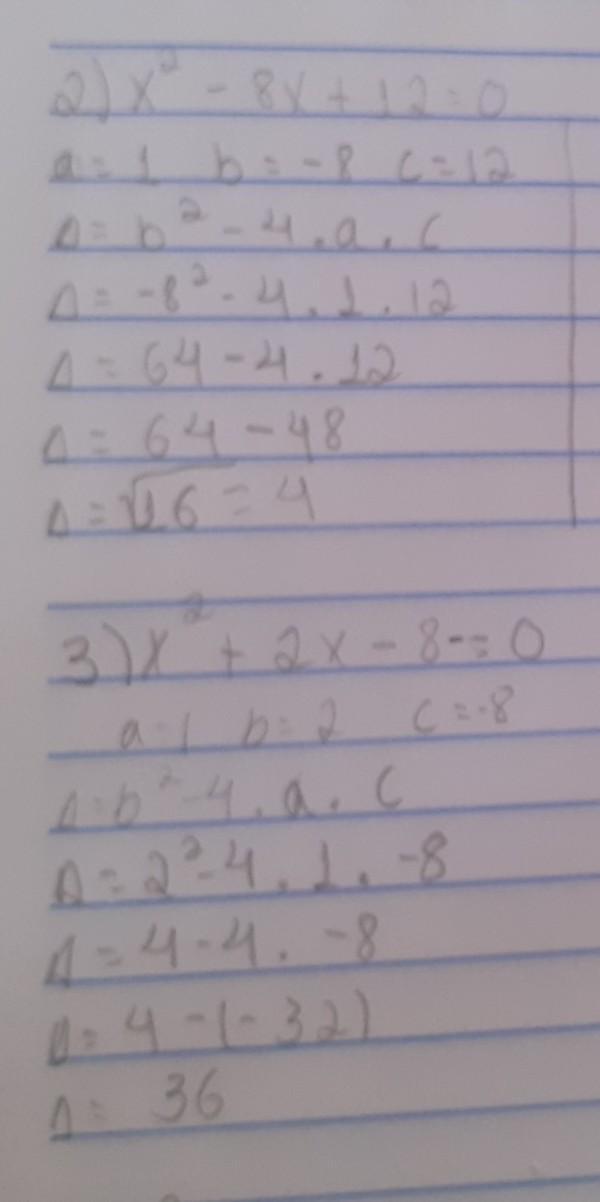 2) x² - 8x + 12 = 0
a = 1 b = -8 c = 12
Δ = b² - 4 . a . c
Δ = -8² - 4 . 1 . 12
Δ = 64 - 4 . 12
Δ = 64 - 48
Δ = √16 = 4
3) x² + 2x - 8 -= 0
a = 1 b = 2 c = -8
Δ = b² - 4 . a . c
Δ = 2² - 4 . 1 . -8
Δ = 4 - 4 . -8
Δ = 4 - (-32)
Δ = 36